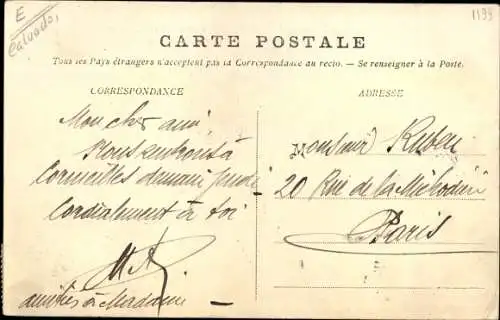 E
Calvados,
1199
CARTE POSTALE
Tous les Pays étrangers n'acceptent pas la Correspondance au recto. — Se renseigner à la Poste.
CORRESPONDANCE
Mon cher ami,
Nous rentrons à
Cormeilles demain
Cordialement à toi
amitiés à Madame
ADRESSE
Monsieur Ruben
20 Rue de la
Paris